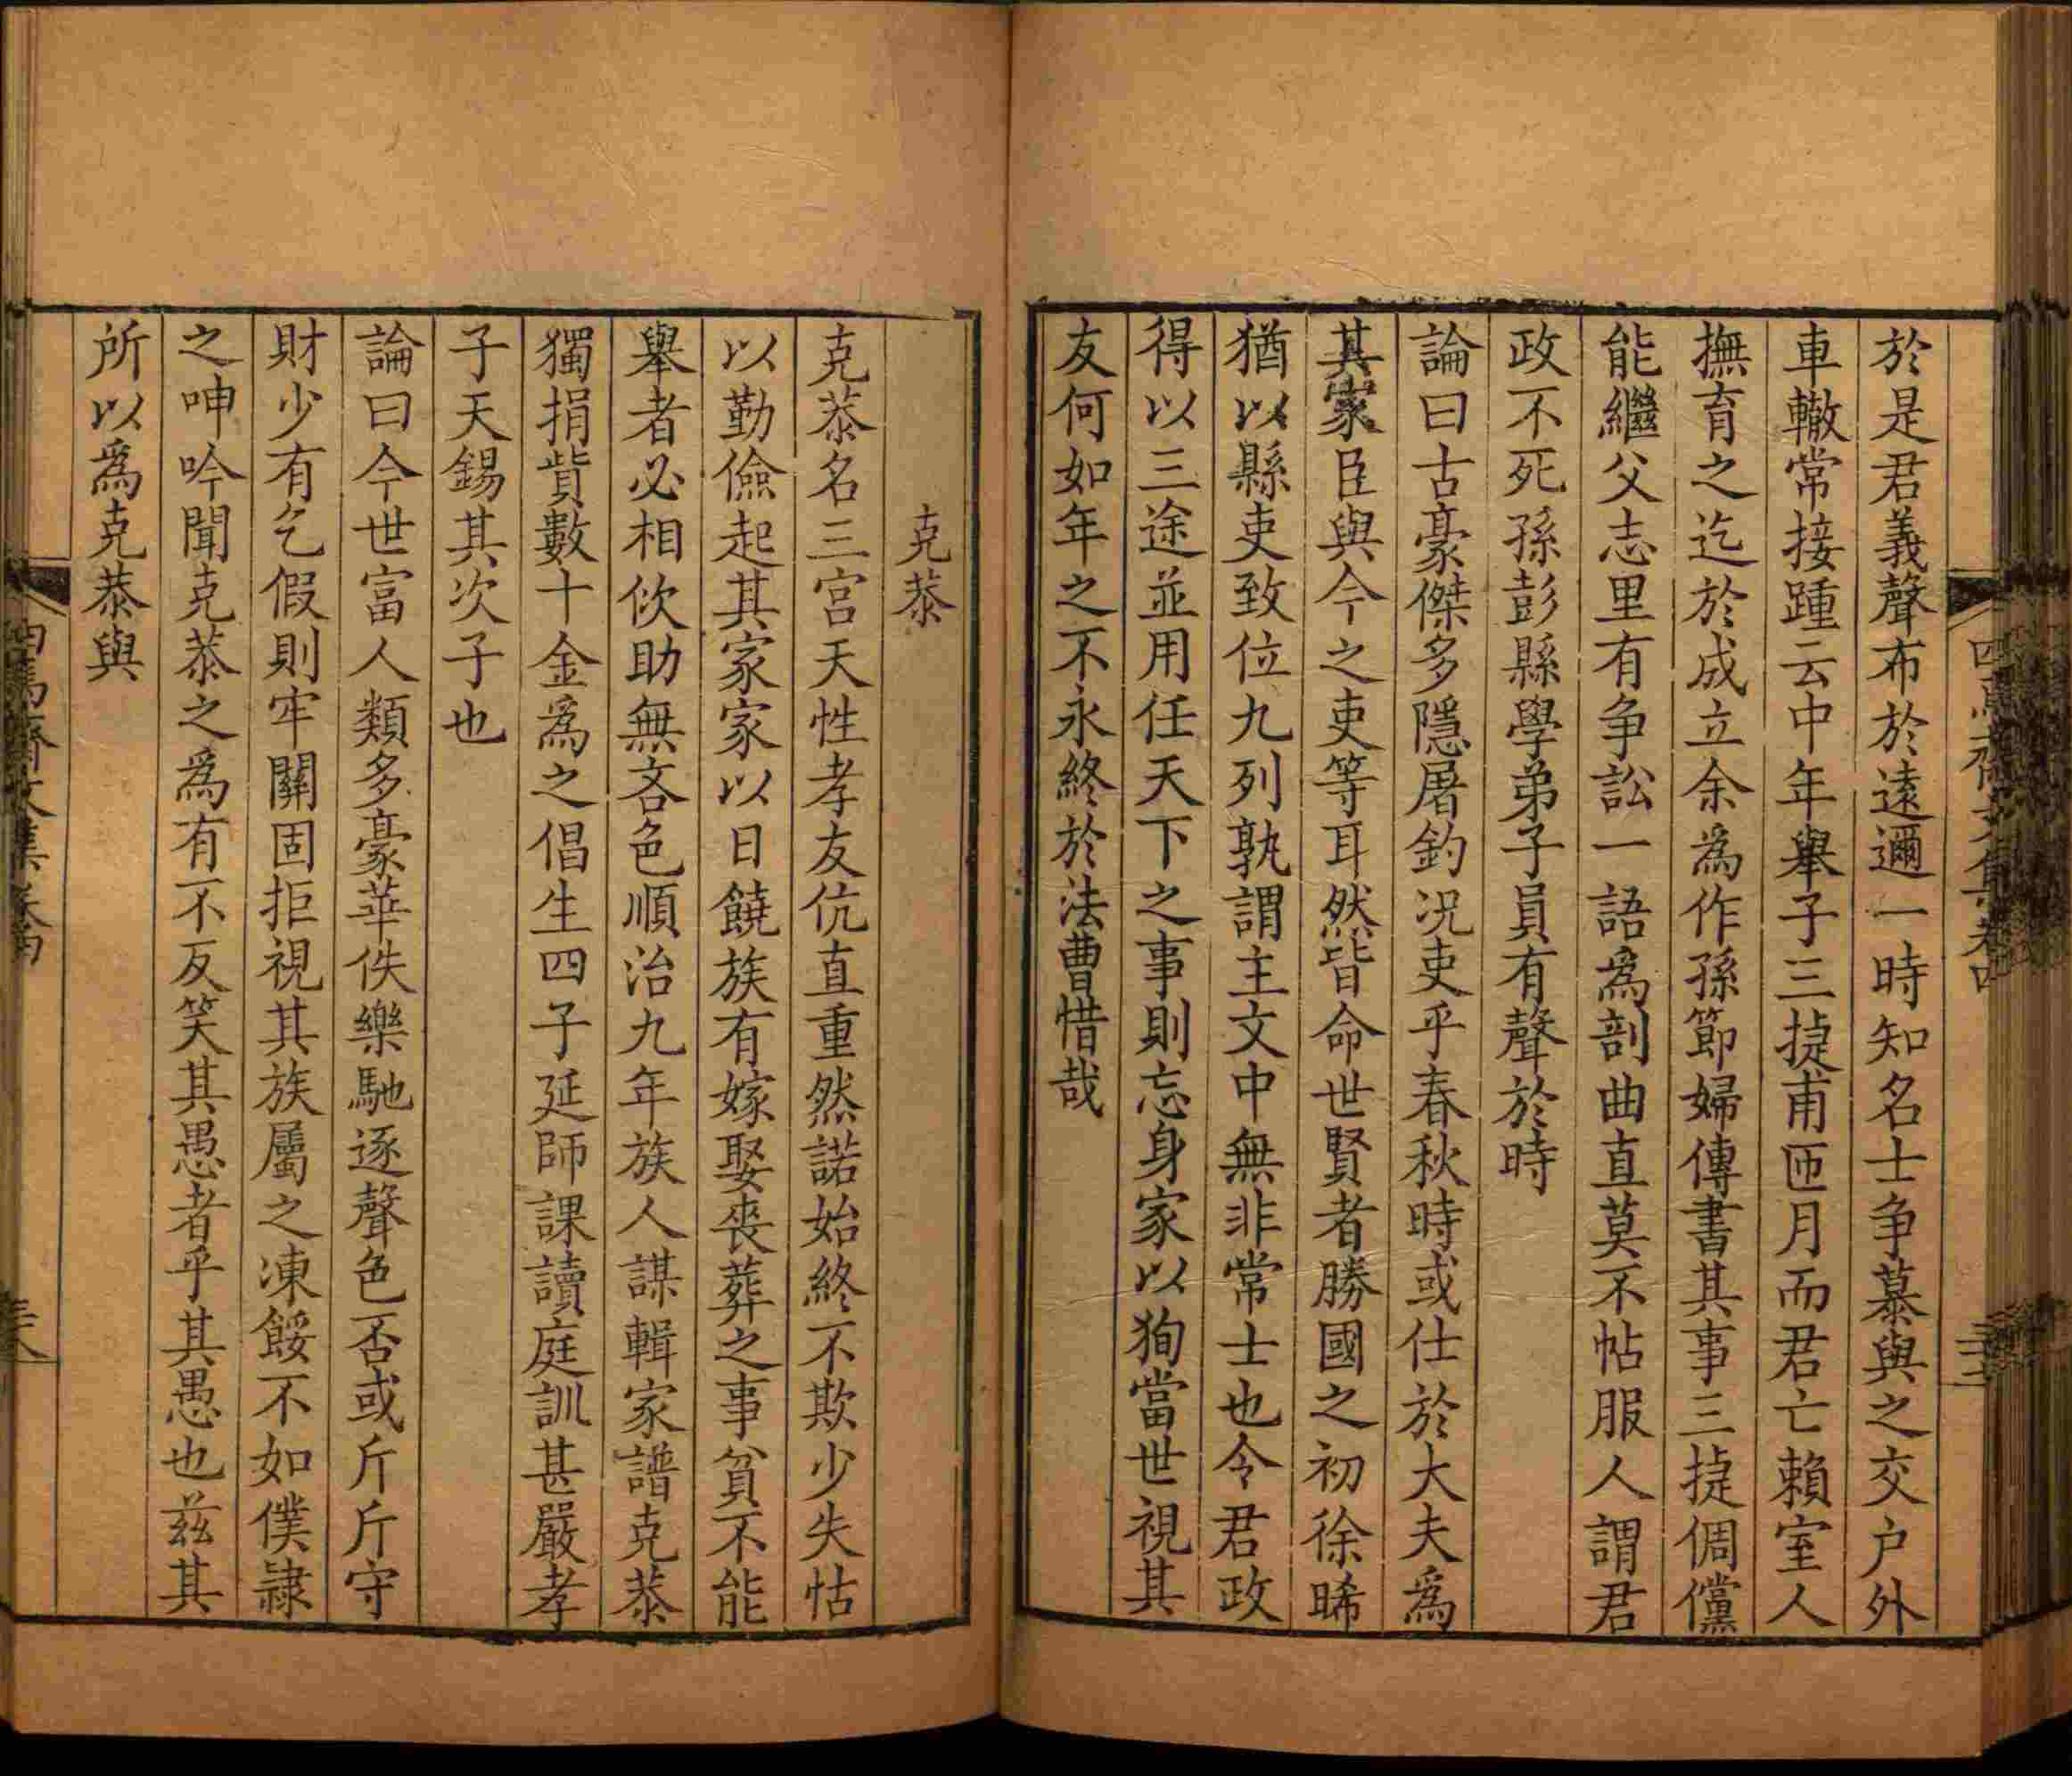 於是君義聲布於遠邇一時知名士争慕與之交户外
車轍常接踵云中年舉子三㨗甫匝月而君亡賴室人
撫育之迄於成立余為作孫節婦傳書其事三㨗倜儻
能繼父志里有争訟一語爲剖曲直莫不帖服人謂君
政不死孫彭縣學弟子員有聲於時
論曰古豪傑多隱屠釣况吏乎春秋時或仕於大夫爲
其家臣與今之吏等耳然皆命世賢者勝國之初徐晞
猶以縣吏致位九列孰謂主文中無非常士也令君政
得以三途並用任天下之事則忘身家以狥當世視其
友何如年之不永終於法曹惜哉
克㳟
克㳟名三宫天性孝友伉直重然諾始終不欺少失怙
以勤儉起其家家以日饒族有嫁娶喪葬之事貧不能
舉者必相佽助無吝色順治九年族人謀輯家譜克㳟
獨捐貲數十金爲之倡生四子延師課讀庭訓甚嚴孝
子天錫其次子也
論曰今世富人類多豪華佚樂馳逐聲色否或斤斤守
財少有乞假則牢關固拒視其族屬之凍餒不如僕隷
之呻吟聞克㳟之爲有不反笑其愚者乎其愚也兹其
所以爲克㳟與